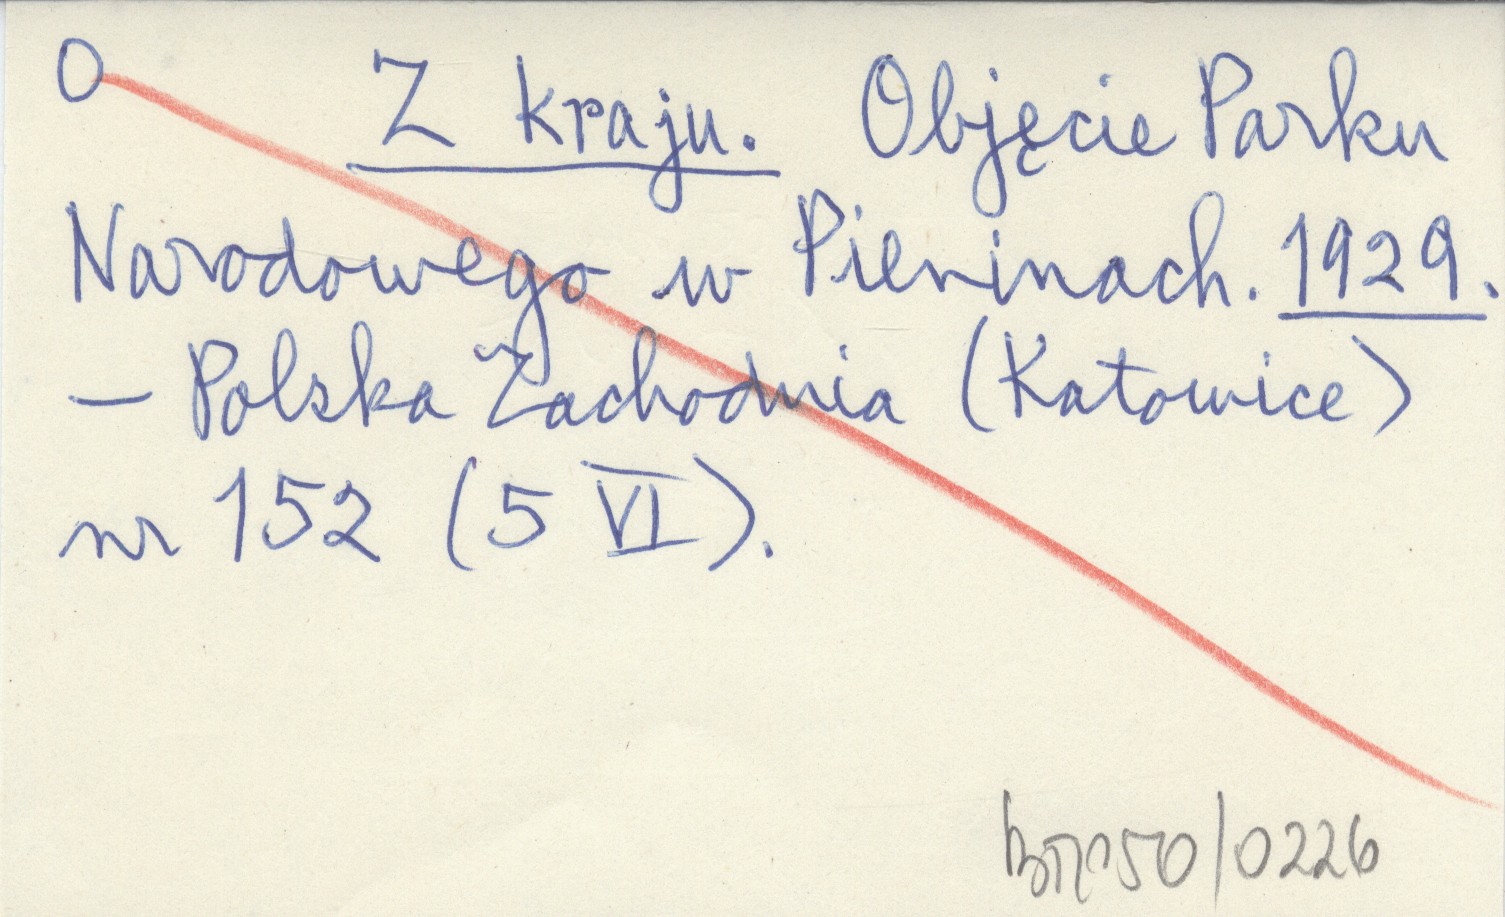 O Z kraju. Objęcie Parku
Narodowego w Pieninach. 1929.
— Polska Zachodnia (Katowice)
nr 152 (5 VI).
50/0226